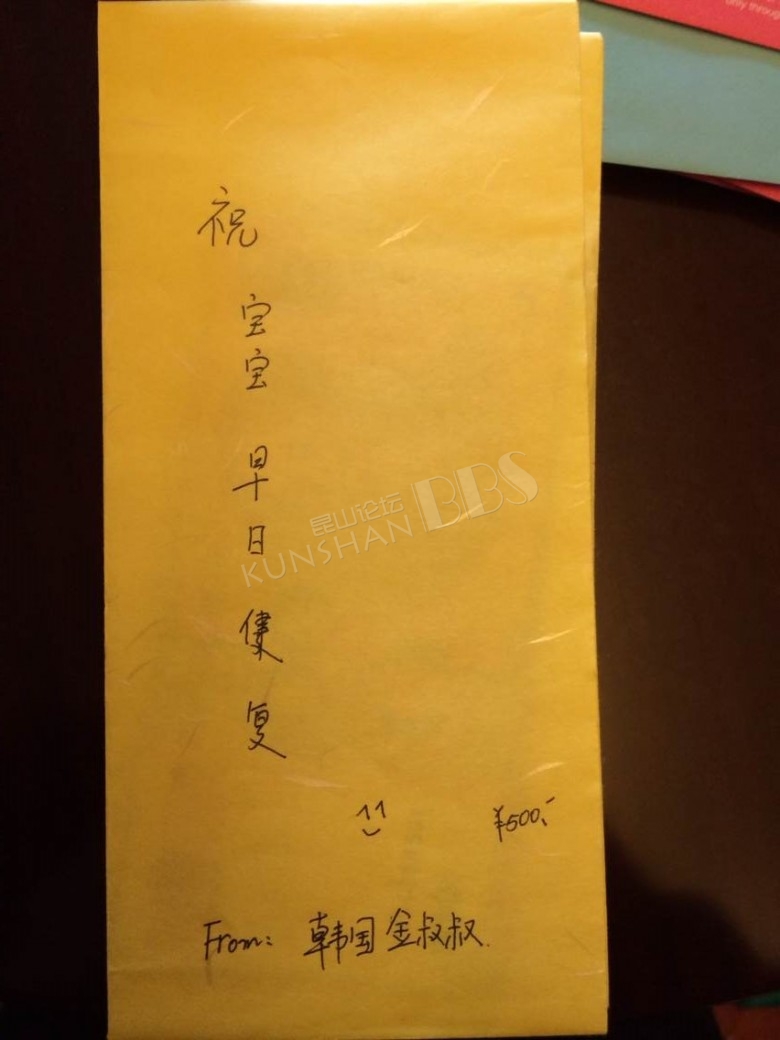 祝
宝宝早日健复
¥500.-
From: 韩国金叔叔.
昆山论坛
KUNSHAN BBS